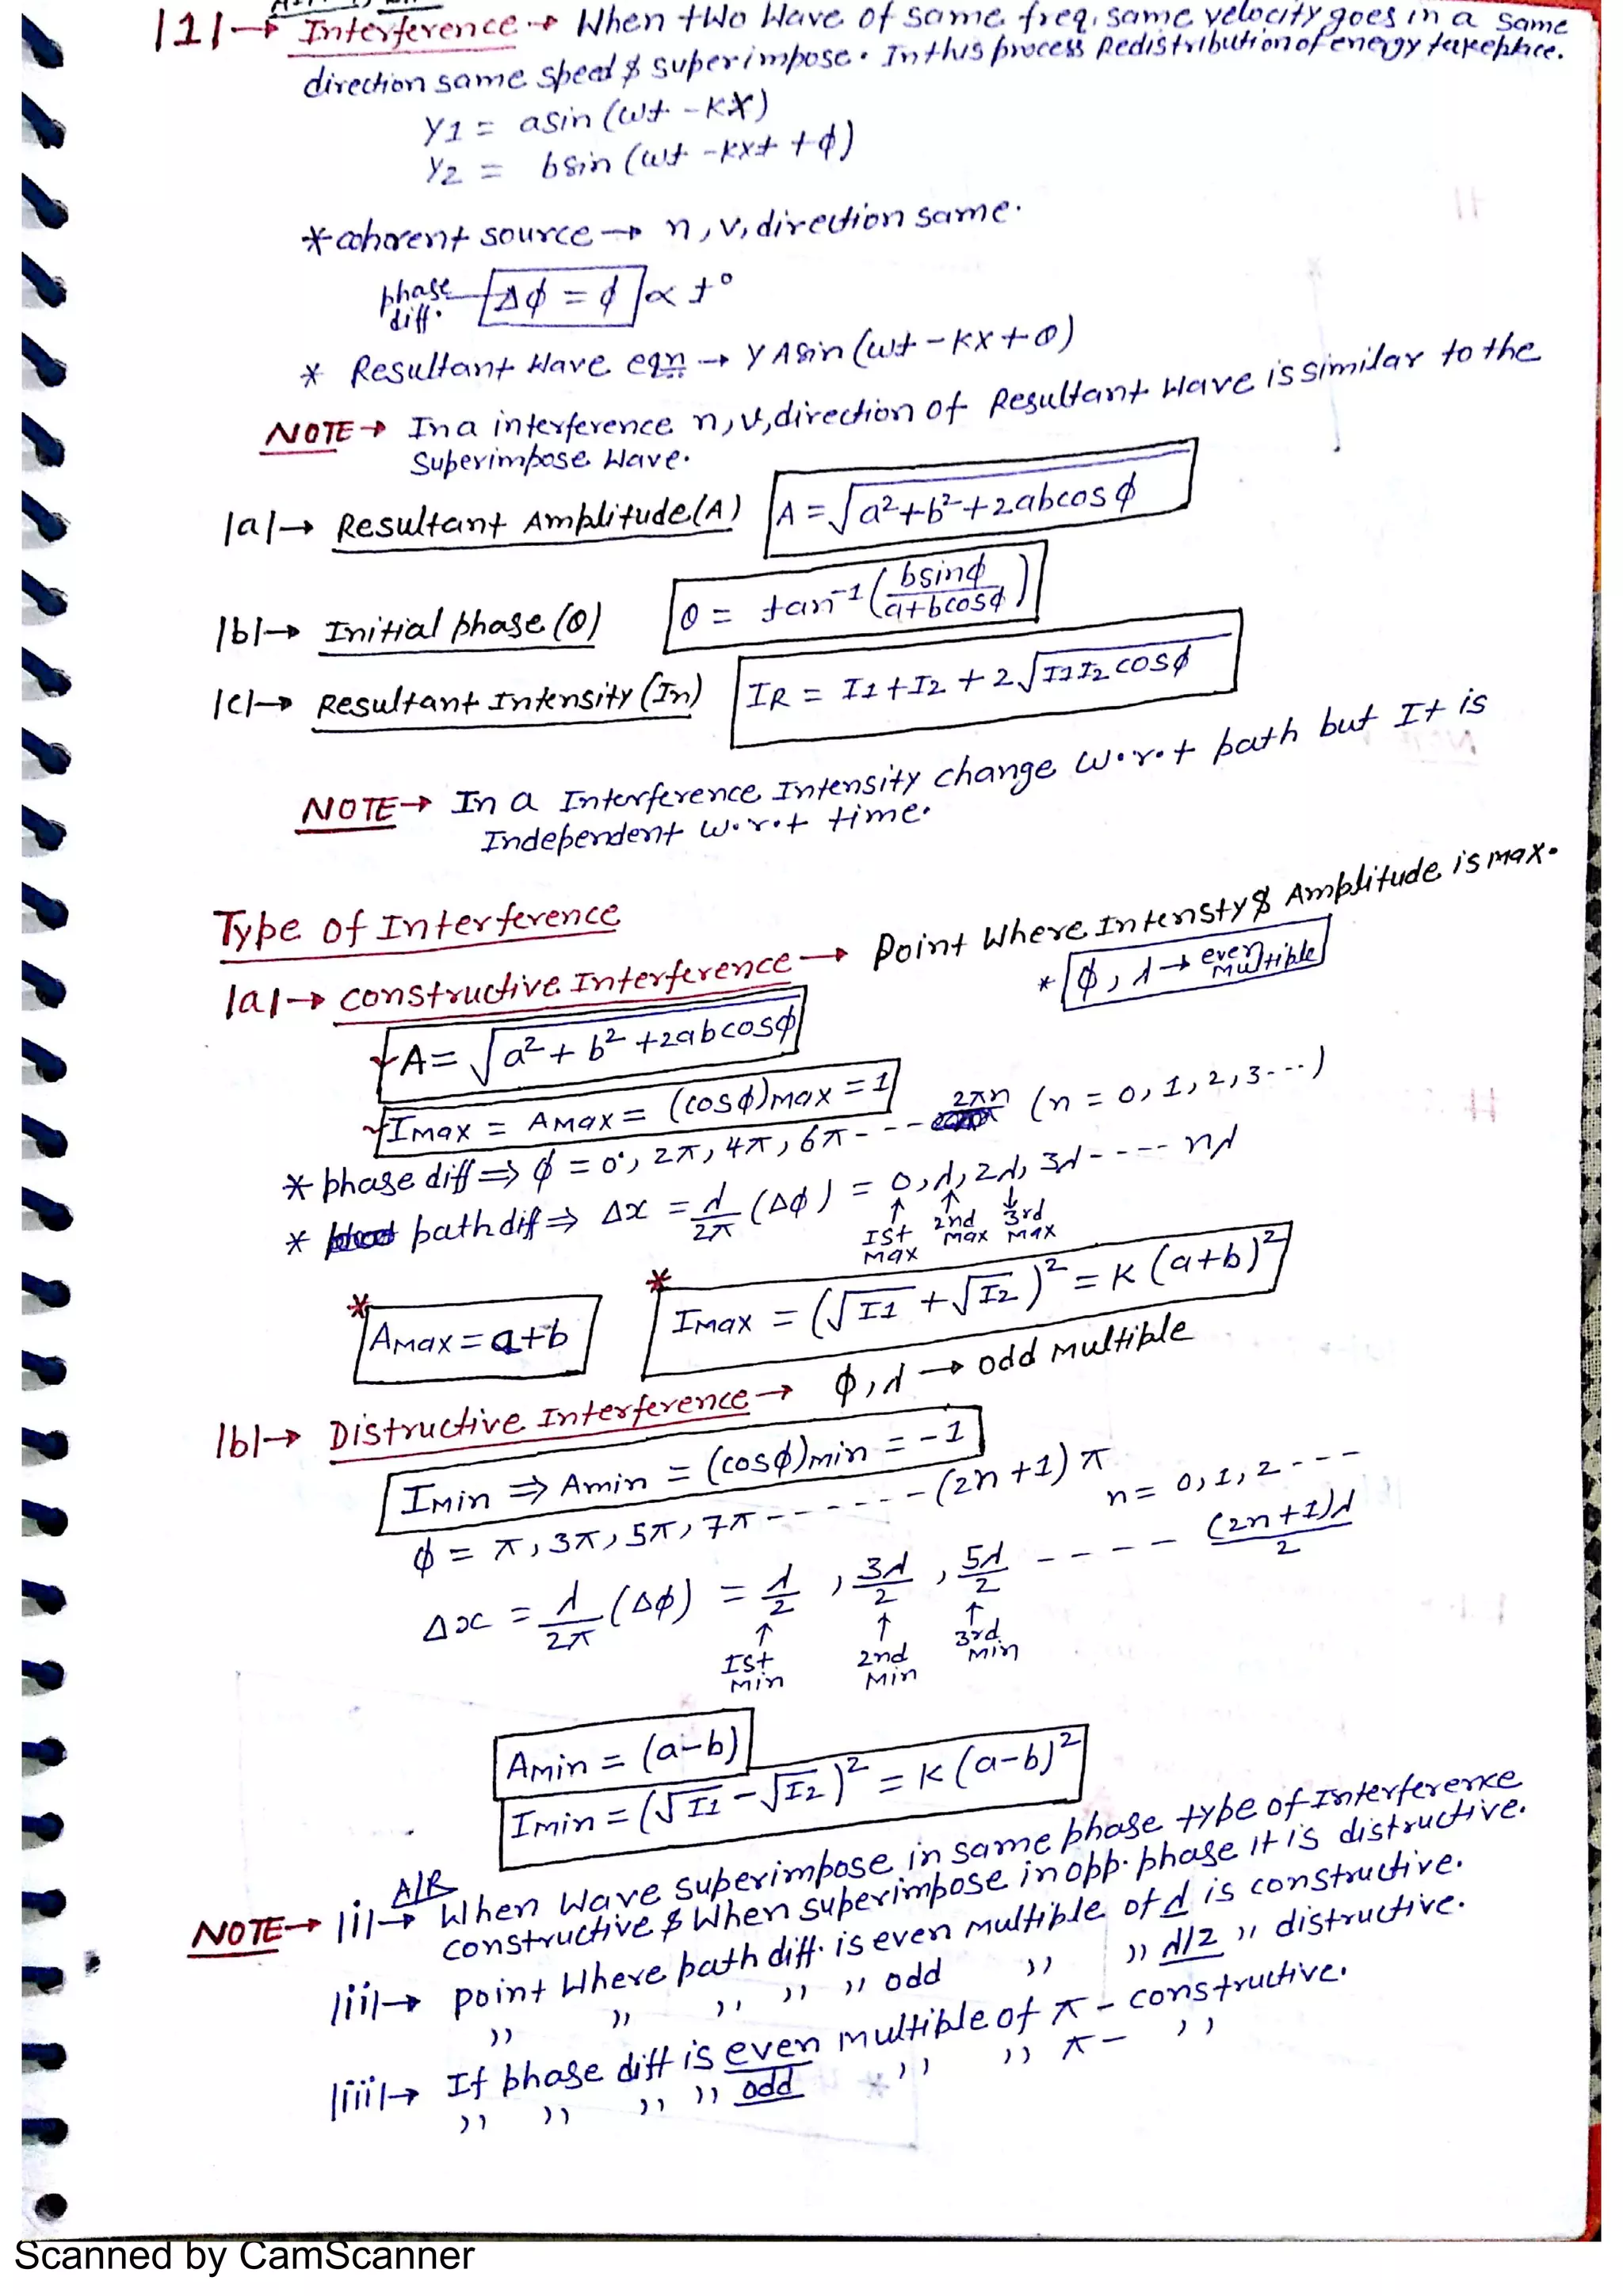 |1|→ Interference → When two Wave of same freq. same velocity goes in a same
direction same speed & superimpose. In this process Redistribution of energy takeplace.
Y1 = asin (wt - kx)
Y2 = bsin (wt - kxt + ϕ)
*cohorent source → n, v, direction same.
phase diff. Δϕ = ϕ ∝ t°
* Resultant Wave eqn → y Asin (wt - kx + θ)
NOTE → In a interference n, v, direction of Resultant Wave is similar to the
Superimpose Wave.
|a|→ Resultant Amplitude(A) A = √a²+b²+2abcosϕ
|b|→ Initial phase (θ) θ = tan⁻¹(bsinϕ/a+bcosϕ)
|c|→ Resultant Intensity (In) IR = I1 + I2 + 2√I1I2 cosϕ
NOTE → In a Interference Intensity change w.r.t path but It is
Independent w.r.t time.
Type of Interference
|a|→ constructive Interference → Point Where Intensty & Amplitude is max.
* ϕ, λ → even Multiple
A = √a² + b² + 2abcosϕ
Imax = Amax = (cosϕ)max = 1
* phase diff ⇒ ϕ = 0°, 2π, 4π, 6π - - - 2πn (n = 0, 1, 2, 3---)
* path dif ⇒ Δx = λ/2π (Δϕ) = 0, λ, 2λ, 3λ - - - - nλ
↑ Ist max ↑ 2nd max ↓ 3rd max
* Amax = a+b * Imax = (√I1 + √I2)² = K (a+b)²
|b|→ Distructive Interference → ϕ, λ → odd Multiple
Imin ⇒ Amin = (cosϕ)min = -1
ϕ = π, 3π, 5π, 7π - - - - - - (2n+1) π n = 0, 1, 2 - - -
Δx = λ/2π (Δϕ) = λ/2, 3λ/2, 5λ/2 - - - - (2n+1)λ/2
↑ Ist Min ↑ 2nd Min ↑ 3rd Min
Amin = (a-b)
Imin = (√I1 - √I2)² = K (a-b)²
AIR
NOTE → |i|→ When Wave superimpose in same phase type of Interference
constructive & When superimpose in opp. phase it is distructive.
|ii|→ point Where path diff. is even Multiple of λ is constructive.
,, ,, ,, ,, ,, odd ,, ,, λ/2 ,, distructive.
|iii|→ If phase diff is even multiple of π - constructive.
,, ,, ,, ,, odd ,, ,, π - ,,
Scanned by CamScanner